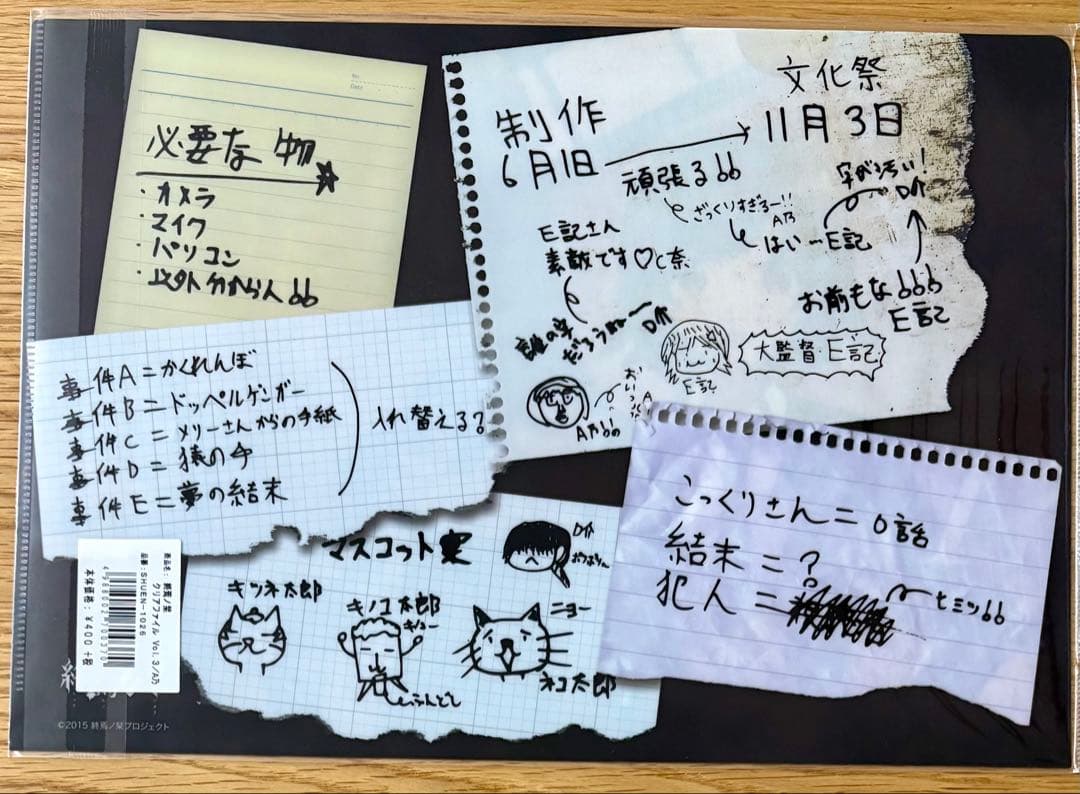 No.
Date
必要な物
・カメラ
・マイク
・パソコン
・以外分からん66
文化祭
制作
6月1日
11月3日
頑張る66
ざっくりすぎるー!!
A乃
はい…E記
字が汚い!
D介
お前もな666
E記
E記さん
素敵です♡C奈
誰の字
だろうねー
D介
E記
大監督・E記
A乃
事件A=かくれんぼ
事件B=ドッペルゲンガー
事件C=メリーさんからの手紙
事件D=猿の手
事件E=夢の結末
入れ替える?
マスコット案
D介
キツネ太郎
キノコ太郎
ふんどし
ニョー
ネコ太郎
こっくりさん=0話
結末=?
犯人=
ヒミツ66
商品名:終焉ノ栞
クリアファイル Vol.3/A乃
品番:SHUEN-1026
本体価格:¥400+税
©2015 終焉ノ栞プロジェクト